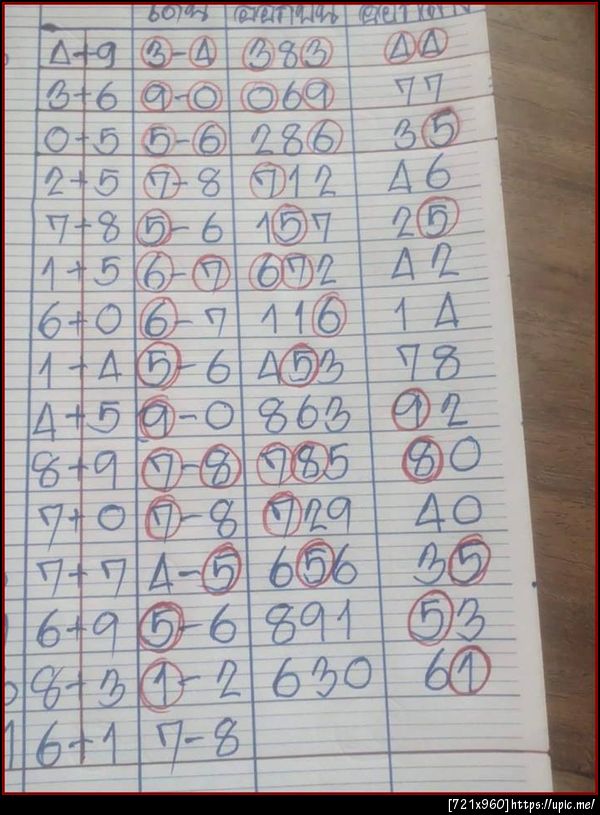 เด่น ออกบน ออกล่าง
4+9 3-4 383 44
3+6 9-0 069 77
0+5 5-6 286 35
2+5 7-8 712 46
7+8 5-6 157 25
1+5 6-7 672 42
6+0 6-7 116 14
1+4 5-6 453 78
4+5 9-0 863 92
8+9 7-8 785 80
7+0 7-8 729 40
7+7 4-5 656 35
6+9 5-6 891 53
8+3 1-2 630 61
6+1 7-8
[721x960]https://upic.me/